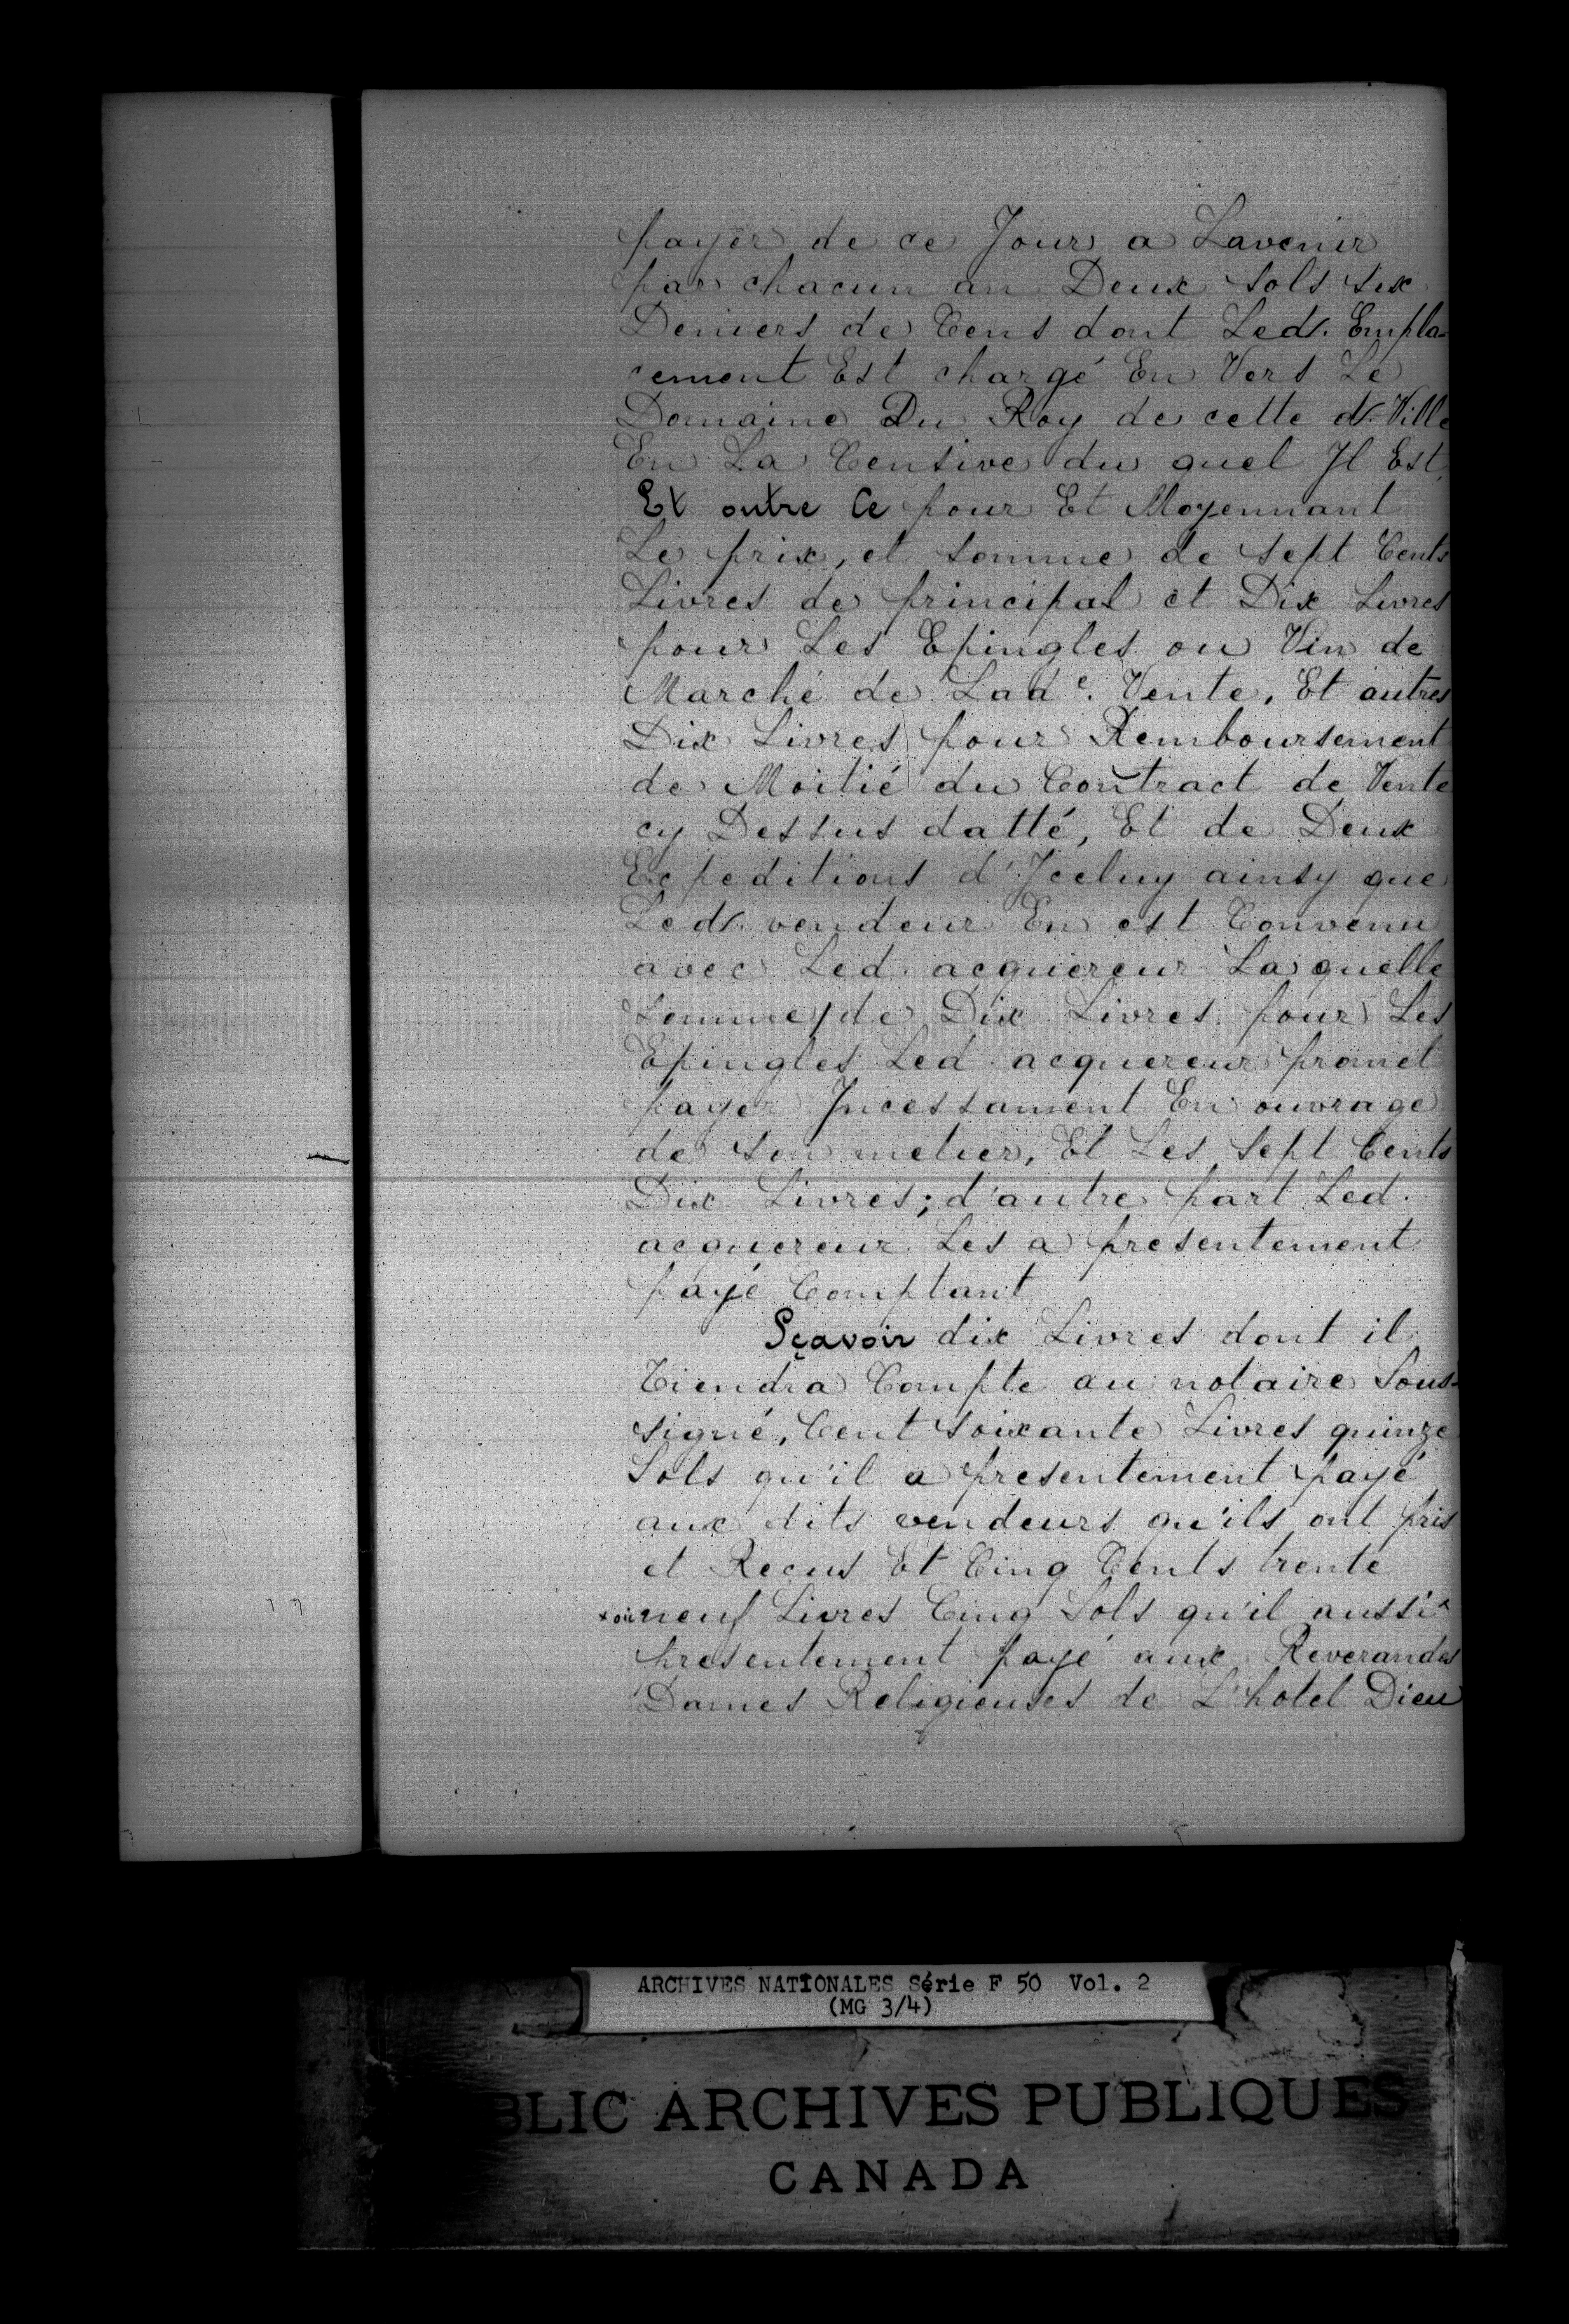 payer de ce Jour a Lavenir
par chacun an Deux sols six
Deniers de Cens dont Led. Empla-
cement Est chargé En Vers Le
Domaine Du Roy de cette d. Ville
En La Censive du quel Il Est
Et outre Ce pour Et Moyennant
Le prix, et somme de sept Cents
Livres de principal et Dix Livres
pour Les Epingles ou Vin de
Marché de Lade. Vente, Et autres
Dix Livres pour Remboursement
de Moitié du Contract de Vente
cy Dessus datté, Et de Deux
Expeditions d'Iceluy ainsy que
Led. vendeur En est Convenu
avec Led. acquereur La quelle
somme de Dix Livres pour Les
Epingles Led. acquereur promet
payer Incessament En ouvrage
de son metier, Et Les Sept Cents
Dix Livres; d'autre part Led.
acquereur Les a presentement
payé Comptant
Sçavoir dix Livres dont il
Tiendra Compte au notaire Sous-
signé, Cent soixante Livres quinze
Sols qu'il a presentement payé
aux dits vendeurs qu'ils ont pris
et Reçus Et Cinq Cents trente
neuf Livres Cinq Sols qu'il aussi x
presentement payé aux Reverandes
Dames Religieuses de L'hotel Dieu
ARCHIVES NATIONALES Série F 50 Vol. 2
(MG 3/4)
BLIC ARCHIVES PUBLIQUES
CANADA